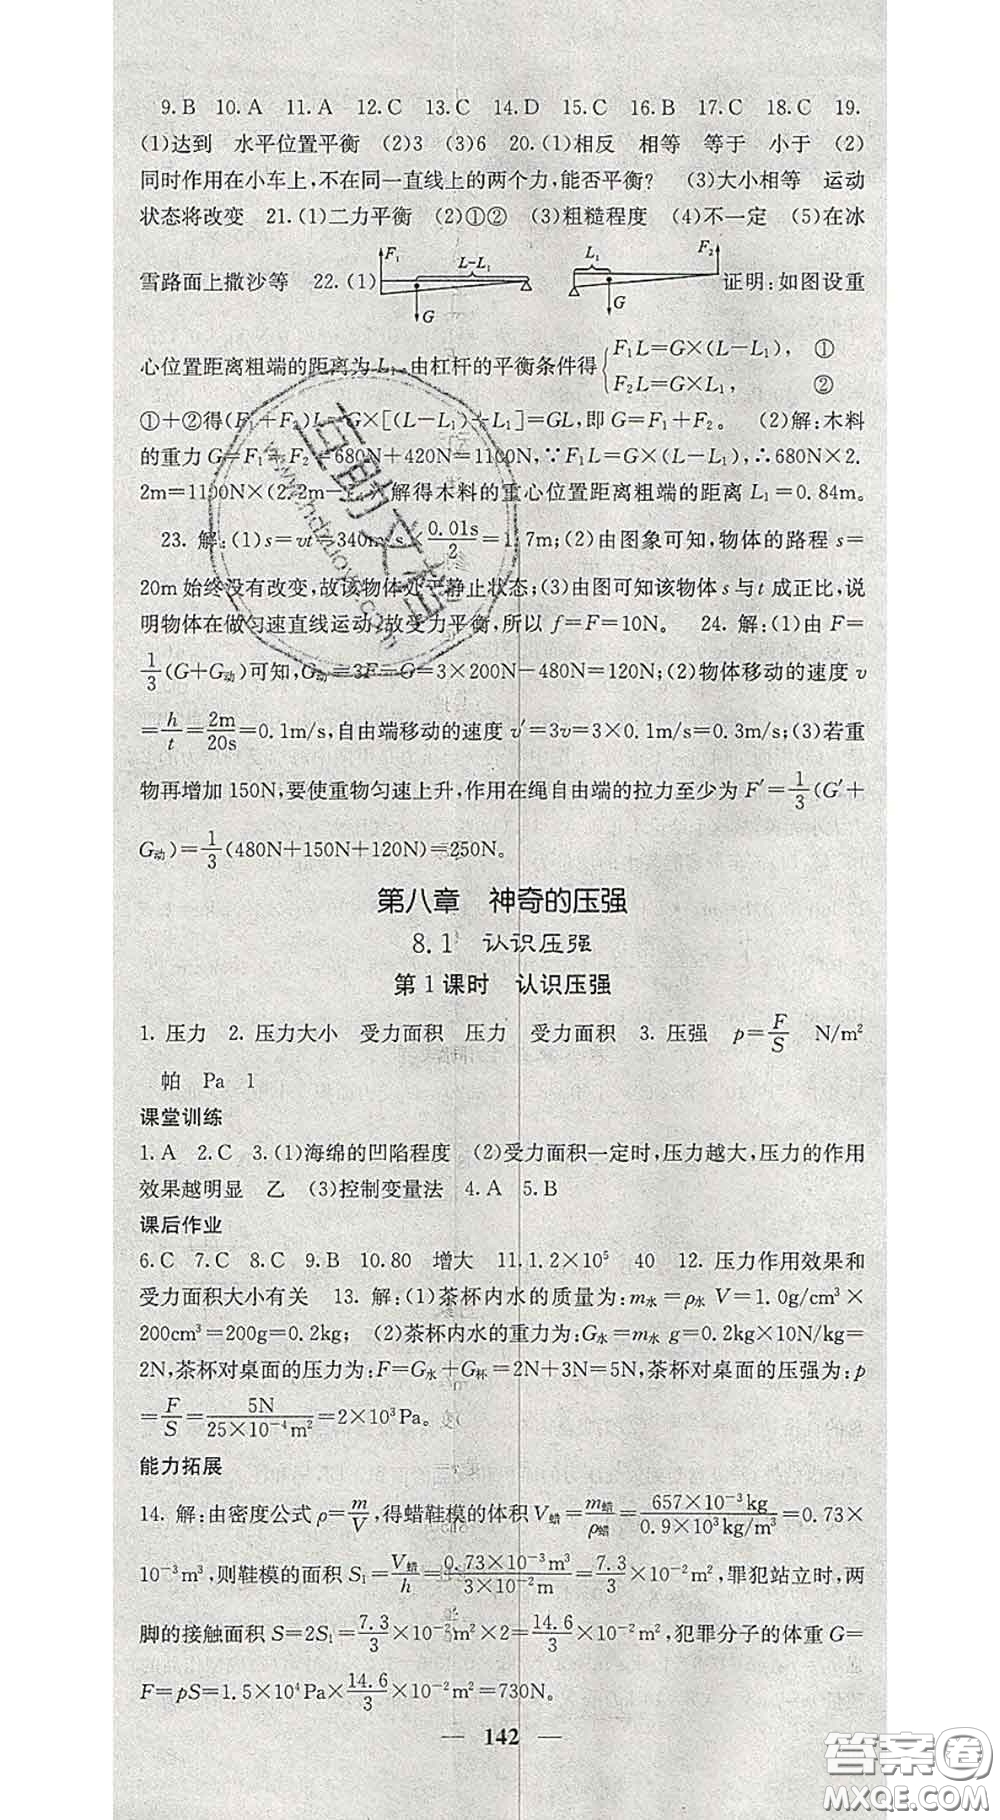 9.B 10.A 11.A 12.C 13.C 14.D 15.C 16.B 17.C 18.C 19.
(1)达到 水平位置平衡 (2)3 (3)6 20.(1)相反 相等 等于 小于 (2)
同时作用在小车上,不在同一直线上的两个力,能否平衡? (3)大小相等 运动
状态将改变 21.(1)二力平衡 (2)①② (3)粗糙程度 (4)不一定 (5)在冰
雪路面上撒沙等 22.(1) F₁ L-L₁ G L₁ F₂ G 证明:如图设重
心位置距离粗端的距离为 L₁,由杠杆的平衡条件得{F₁L=G×(L-L₁), ①
F₂L=G×L₁, ②
①+②得(F₁+F₂)L=G×[(L-L₁)+L₁]=GL,即 G=F₁+F₂。 (2)解:木料
的重力 G=F₁+F₂=680N+420N=1100N,∵F₁L=G×(L-L₁),∴680N×2.
2m=1100N×(2.2m- 解得木料的重心位置距离粗端的距离 L₁=0.84m。
23. 解:(1)s=vt=340m/s×0.01s/2=1.7m;(2)由图象可知,物体的路程 s=
20m 始终没有改变,故该物体处于静止状态;(3)由图可知该物体 s 与 t 成正比,说
明物体在做匀速直线运动,故受力平衡,所以 f=F=10N。 24. 解:(1)由 F=
1/3(G+G动)可知,G动=3F-G=3×200N-480N=120N;(2)物体移动的速度 v
=h/t=2m/20s=0.1m/s,自由端移动的速度 v′=3v=3×0.1m/s=0.3m/s;(3)若重
物再增加 150N,要使重物匀速上升,作用在绳自由端的拉力至少为 F′=1/3(G′+
G动)=1/3(480N+150N+120N)=250N。
第八章 神奇的压强
8.1 认识压强
第 1 课时 认识压强
1. 压力 2. 压力大小 受力面积 压力 受力面积 3. 压强 p=F/S N/m²
帕 Pa 1
课堂训练
1.A 2.C 3.(1)海绵的凹陷程度 (2)受力面积一定时,压力越大,压力的作用
效果越明显 乙 (3)控制变量法 4.A 5.B
课后作业
6.C 7.C 8.C 9.B 10.80 增大 11.1.2×10⁵ 40 12. 压力作用效果和
受力面积大小有关 13. 解:(1)茶杯内水的质量为:m水=ρ水 V=1.0g/cm³×
200cm³=200g=0.2kg; (2)茶杯内水的重力为:G水=m水 g=0.2kg×10N/kg=
2N,茶杯对桌面的压力为:F=G水+G杯=2N+3N=5N,茶杯对桌面的压强为:p
=F/S=5N/25×10⁻⁴m²=2×10³Pa。
能力拓展
14. 解:由密度公式 ρ=m/V,得蜡鞋模的体积 V蜡=m蜡/ρ蜡=657×10⁻³kg/0.9×10³kg/m³=0.73×
10⁻³m³,则鞋模的面积 S₁=V蜡/h=0.73×10⁻³m³/3×10⁻²m=7.3/3×10⁻²m²,罪犯站立时,两
脚的接触面积 S=2S₁=7.3/3×10⁻²m²×2=14.6/3×10⁻²m²,犯罪分子的体重 G=
F=pS=1.5×10⁴Pa×14.6/3×10⁻²m²=730N。
— 142 —
互助文档
www.hdzuoye.com
答案圈
MXQE.COM